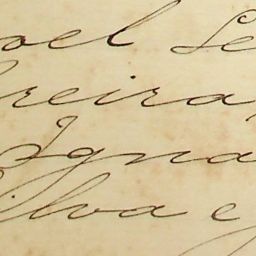 oel Le
reira,
Igna
ilva e